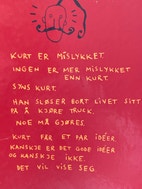 KURT ER MISLYKKET.
INGEN ER MER MISLYKKET
ENN KURT.
SYNS KURT.
HAN SLØSER BORT LIVET SITT
PÅ Å KJØRE TRUCK.
NOE MÅ GJØRES.
KURT FÅR ET PAR IDÉER.
KANSKJE ER DET GODE IDÉER
OG KANSKJE IKKE.
DET VIL VISE SEG.